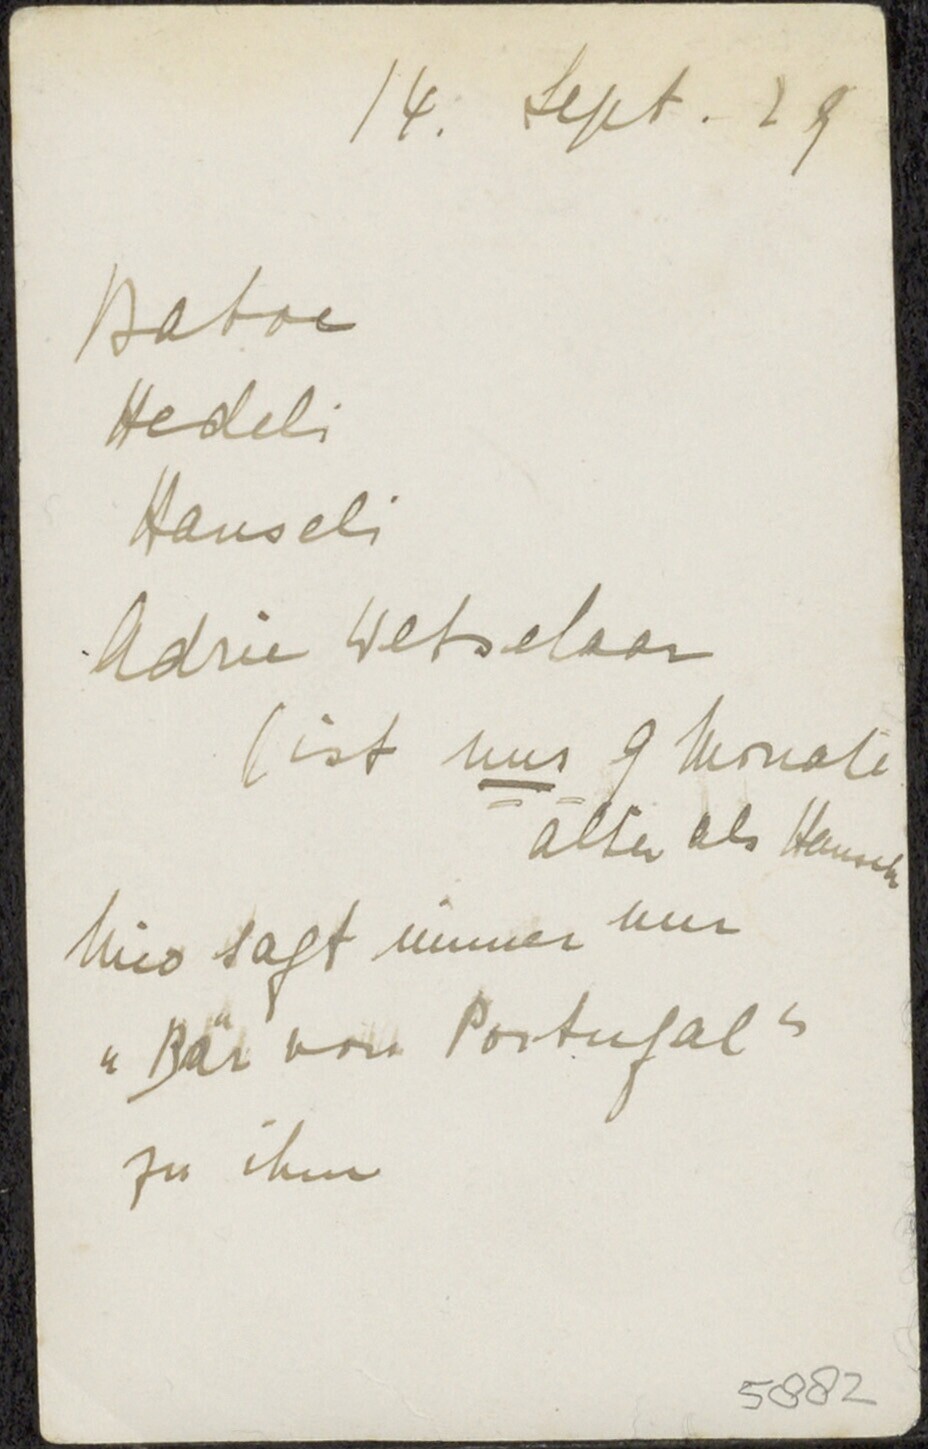 14. Sept. 29
Baboe
Hedeli
Hanseli
Adrie Wetselaar
(ist nur 9 Monate
älter als Hanseli
Nico sagt immer nur
„Bär von Portugal“
zu ihm
5882